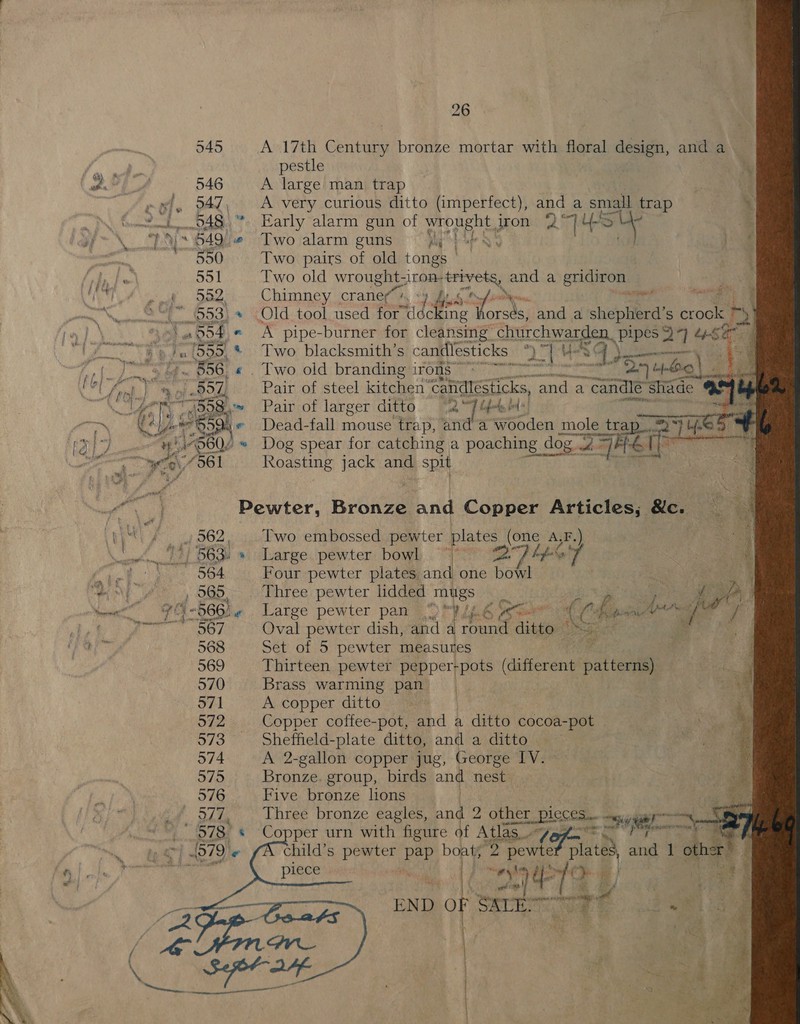 26
545 A 17th Century bronze mortar with floral design, and a
pestle
546 A large man trap
547 A very curious ditto (imperfect), and a small trap
548 Early alarm gun of wrought iron 27454
549 Two alarm guns
550 Two pairs of old tongs
551 Two old wrought-iron trivets, and a gridiron
552 Chimney crane
553 Old tool used for docking horses, and a shepherd's crock
554 A pipe-burner for cleansing churchwarden pipes 27458
555 Two blacksmith's candlesticks 27459
556 Two old branding irons 27460
557 Pair of steel kitchen candlesticks, and a candle shade 27462
558 Pair of larger ditto
559 Dead-fall mouse trap, and a wooden mole trap 27465
560 Dog spear for catching a poaching dog 27461
561 Roasting jack and spit
Pewter, Bronze and Copper Articles, &c.
562 Two embossed pewter plates (one A.F.)
563 Large pewter bowl 27467
564 Four pewter plates and one bowl
565 Three pewter lidded mugs
566 Large pewter pan
567 Oval pewter dish, and a round ditto
568 Set of 5 pewter measures
569 Thirteen pewter pepper-pots (different patterns)
570 Brass warming pan
571 A copper ditto
572 Copper coffee-pot, and a ditto cocoa-pot
573 Sheffield-plate ditto, and a ditto
574 A 2-gallon copper jug, George IV.
575 Bronze group, birds and nest
576 Five bronze lions
577 Three bronze eagles, and 2 other pieces
578 Copper urn with figure of Atlas 27469
579 A child's pewter pap boat, 2 pewter plates, and 1 other
piece 27470
END OF SALE.
Sept 24